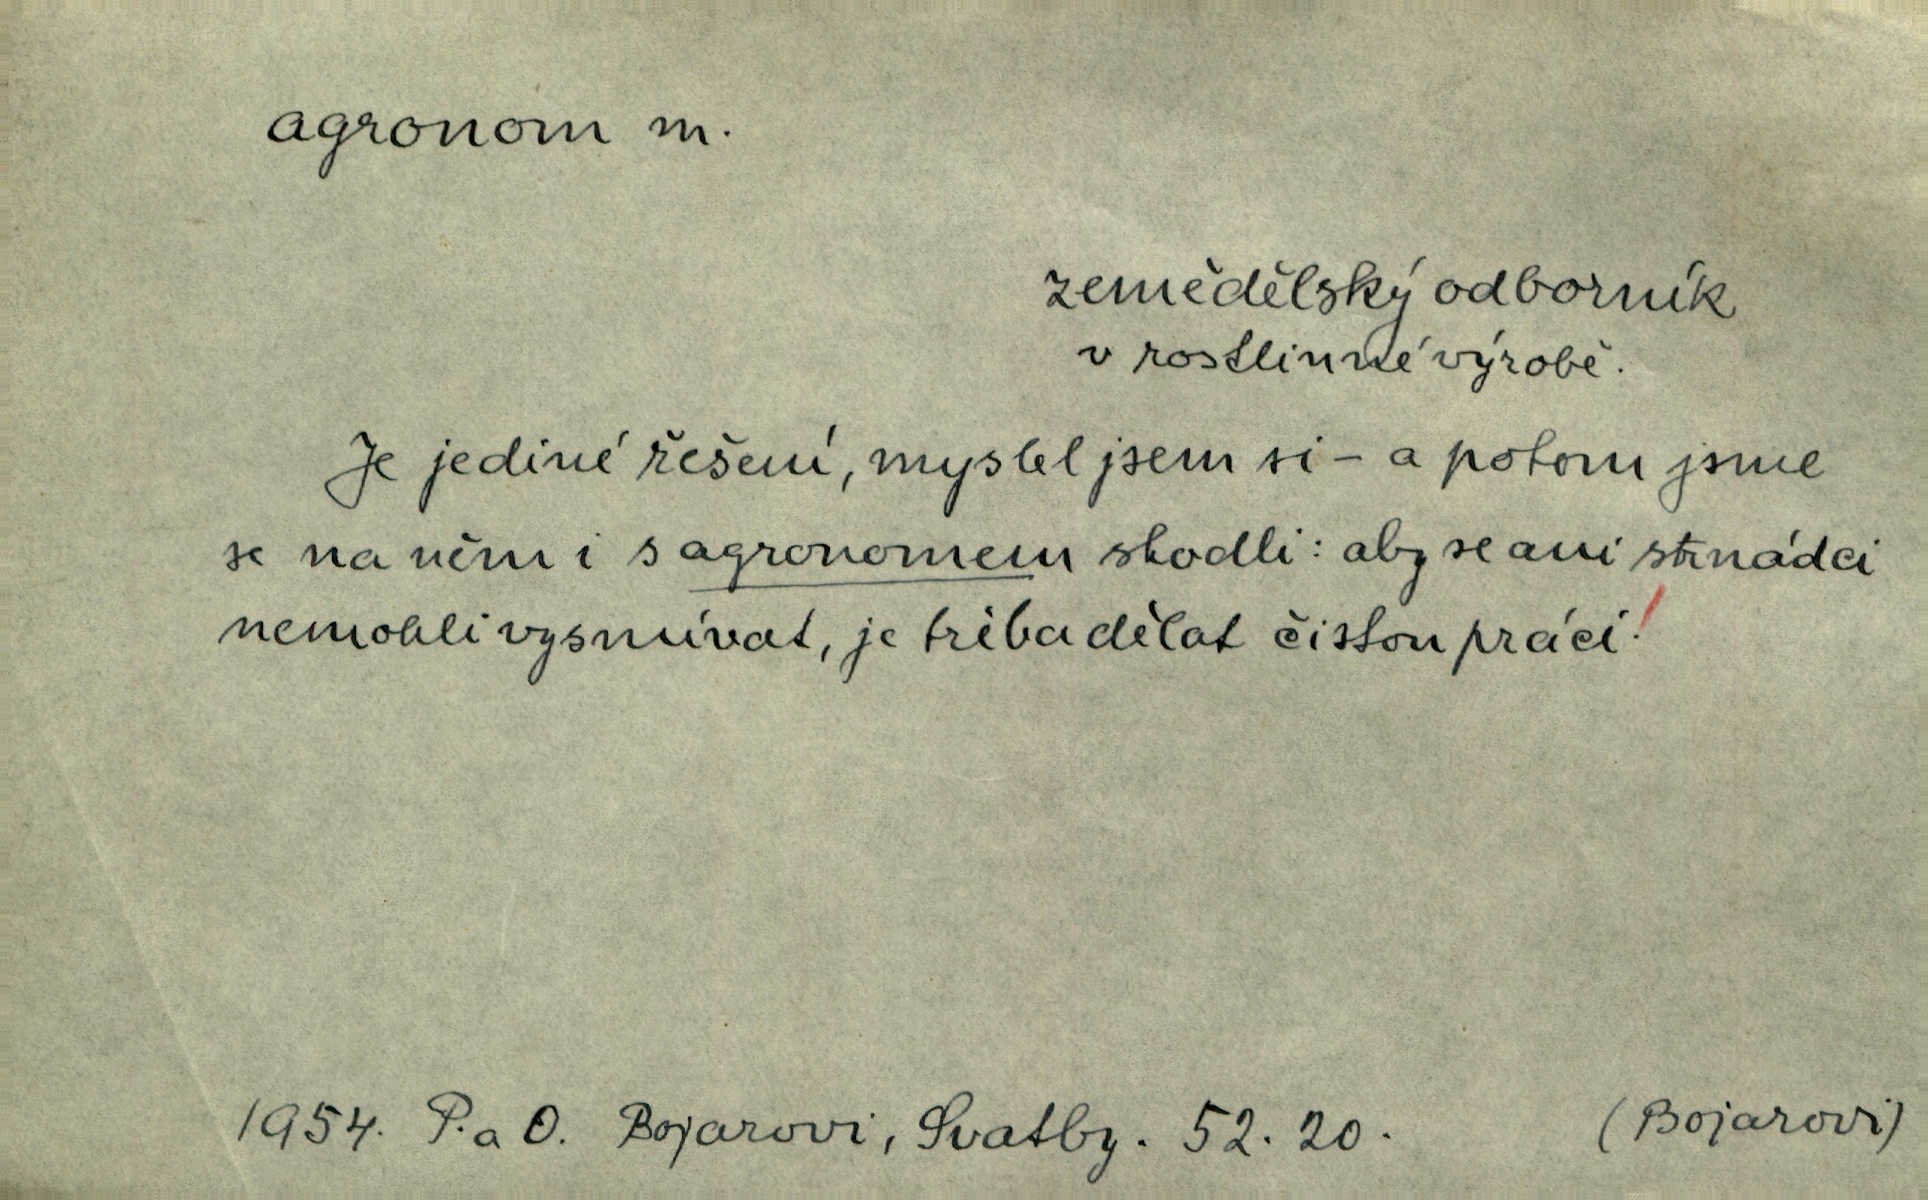 agronom m.
zemědělský odborník
v rostlinné výrobě.
Je jediné řešení, myslel jsem si – a potom jsme
se na něm i s agronomem shodli: aby se ani strnádci
nemohli vysmívat, je třeba dělat čistou práci!
1954. P. a O. Bojarovi, Svatby. 52. 20. (Bojarovi)